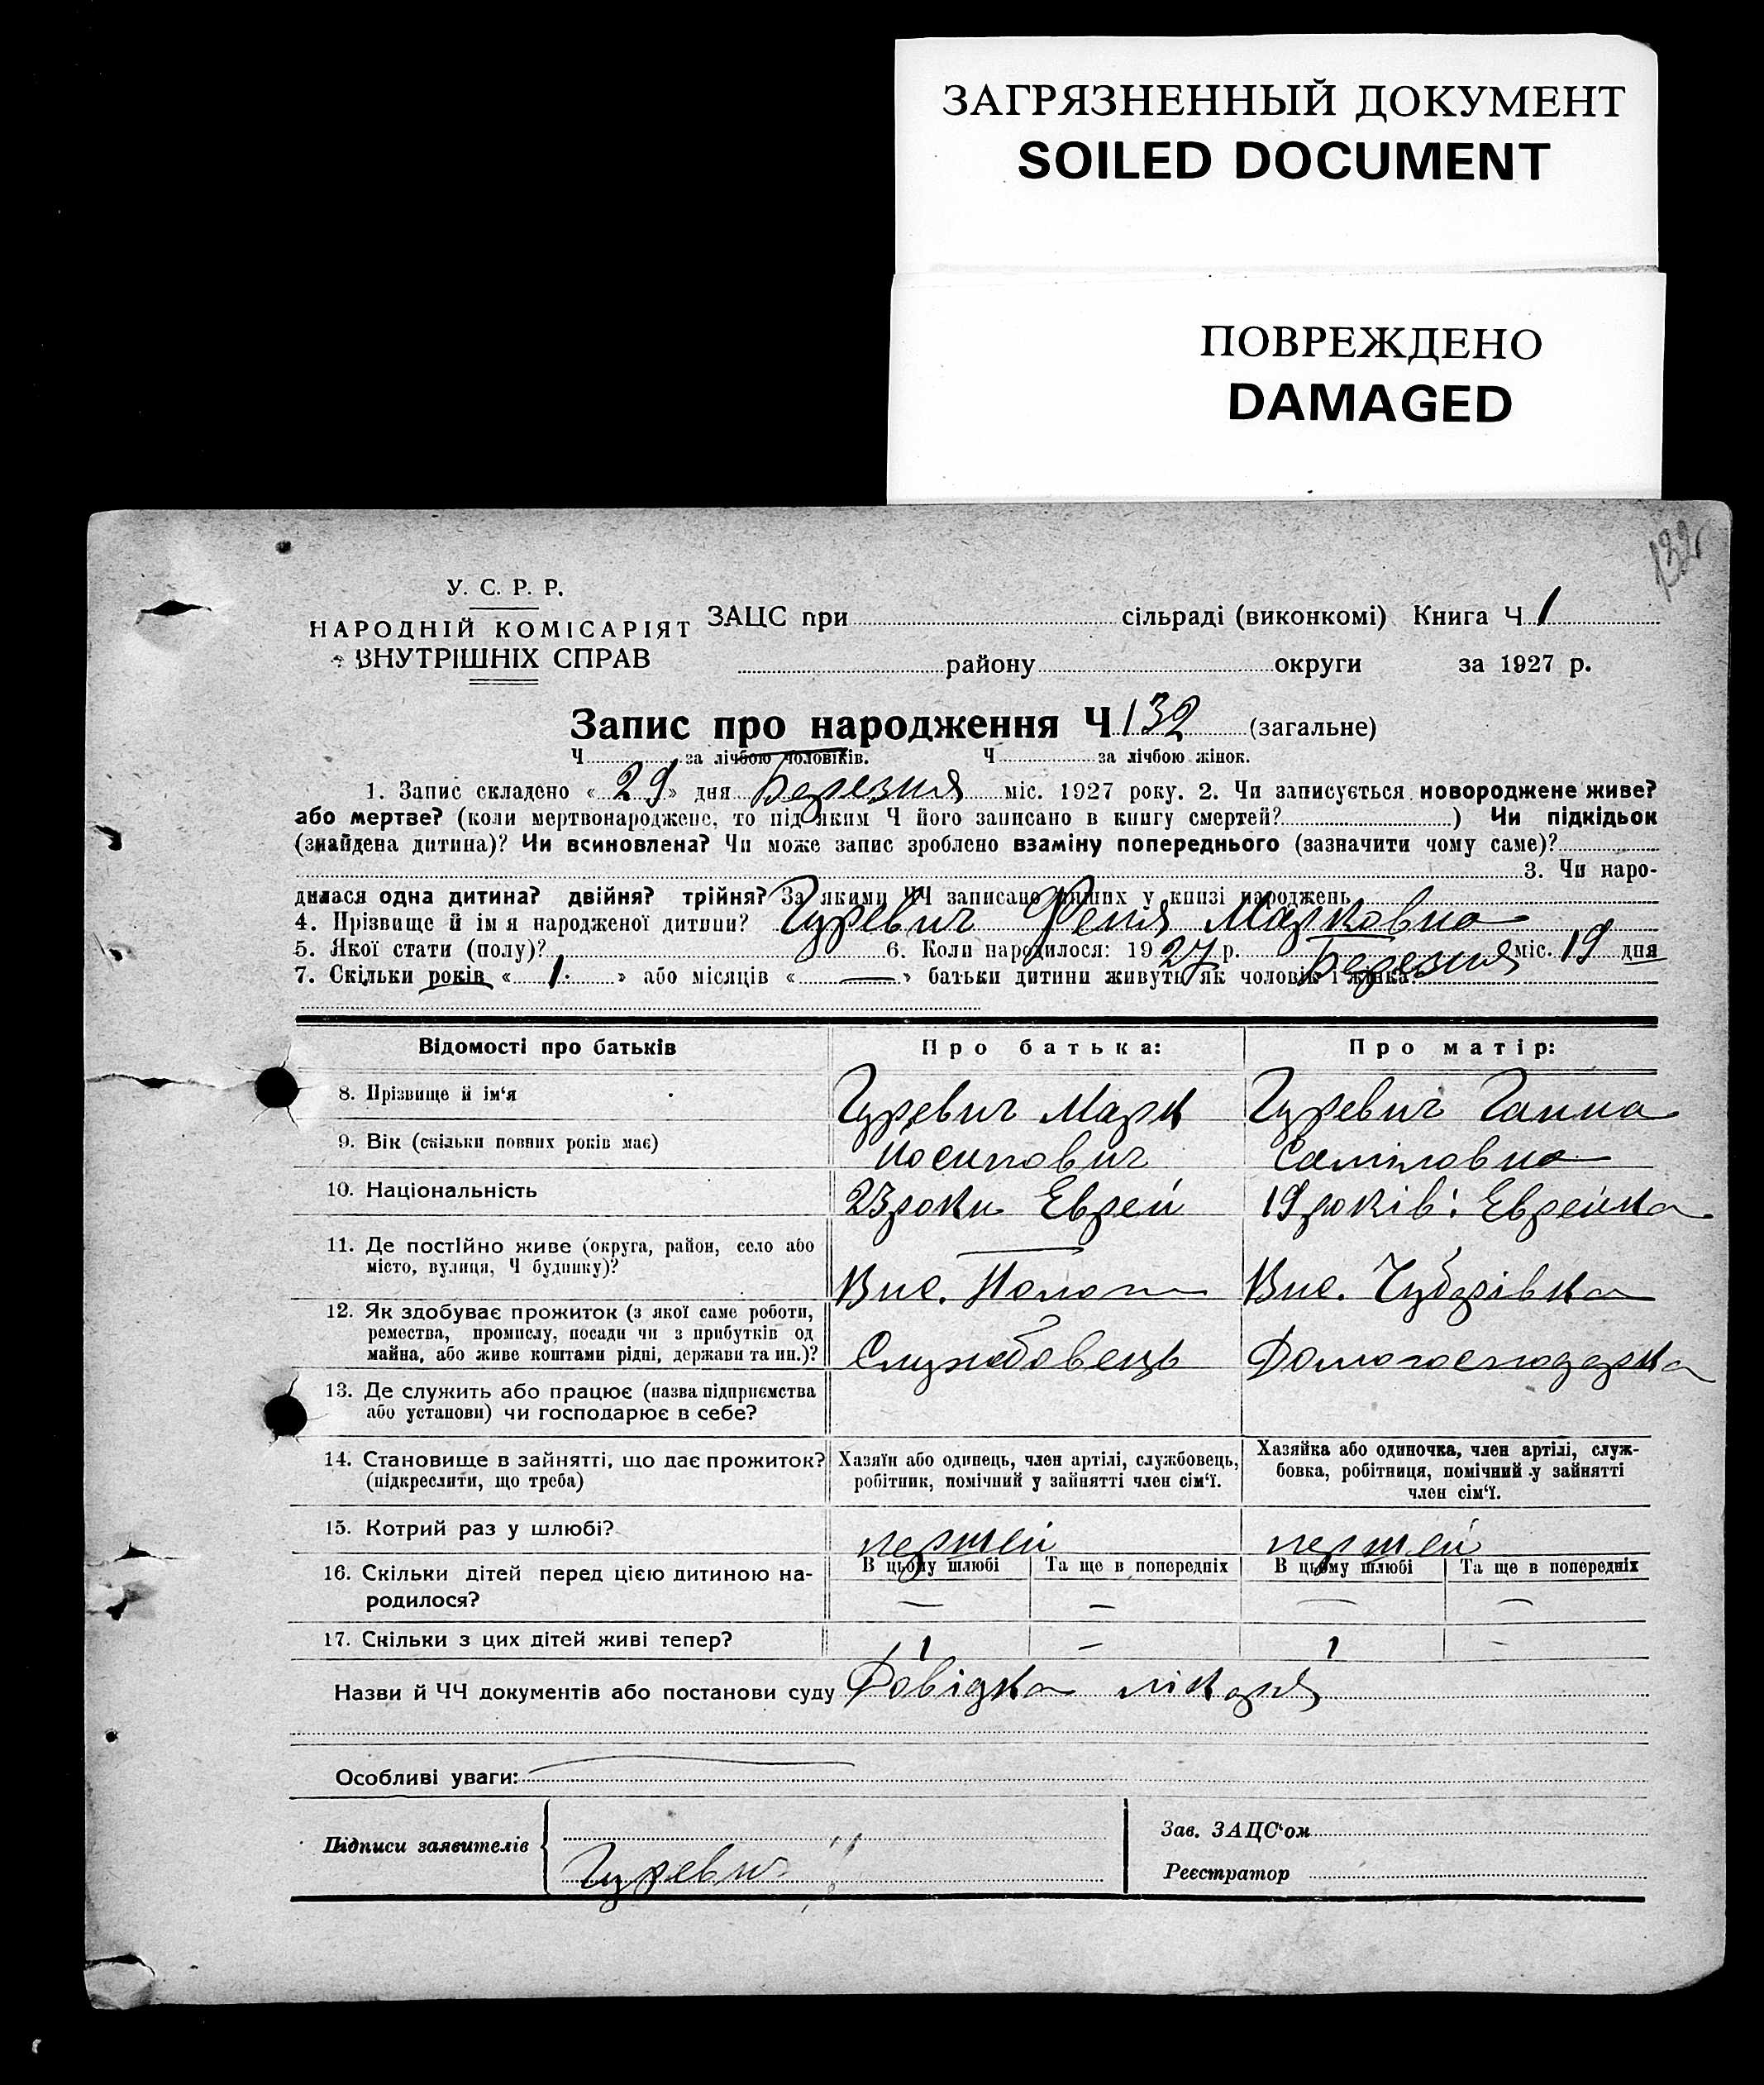 ЗАГРЯЗНЕННЫЙ ДОКУМЕНТ
SOILED DOCUMENT
ПОВРЕЖДЕНО
DAMAGED
132
У. С. Р. Р.
НАРОДНІЙ КОМІСАРІЯТ
ВНУТРІШНІХ СПРАВ
ЗАЦС при сільраді (виконкомі) Книга Ч 1
району округи за 1927 р.
Запис про народження Ч 132 (загальне)
Ч за лічбою чоловіків. Ч за лічбою жінок.
1. Запис складено « 29 » дня Березня міс. 1927 року. 2. Чи записується новороджене живе?
або мертве? (коли мертвонароджене, то під яким Ч його записано в книгу смертей? ) Чи підкідьок
(знайдена дитина)? Чи всиновлена? Чи може запис зроблено взаміну попереднього (зазначити чому саме)?
3. Чи наро-
дилася одна дитина? двійня? трійня? За якими ЧЧ записано инших у книзі народжень
4. Прізвище й ім я народженої дитини? Гуревич Феня Марковна
5. Якої стати (полу)? 6. Коли народилося: 1927 р. Березня міс. 19 дня
7. Скільки років « 1 » або місяців « — » батьки дитини живуть як чоловік і жінка?
Відомості про батьків Про батька: Про матір:
8. Прізвище й ім‘я Гуревич Марк Гуревич Ганна
9. Вік (скільки повних років має) Йосипович Саміловна
10. Національність 23 роки Еврей 19 років: Еврейка
11. Де постійно живе (округа, район, село або
місто, вулиця, Ч будинку)? Вис. Пологи Вис. Чубарівка
12. Як здобуває прожиток (з якої саме роботи,
ремества, промислу, посади чи з прибутків од
майна, або живе коштами рідні, держави та ин.)? Службовець Домогосподарка
13. Де служить або працює (назва підприємства
або установи) чи господарює в себе?
14. Становище в зайнятті, що дає прожиток?
(підкреслити, що треба)
Хазяїн або одинець, член артілі, службовець,
робітник, помічний у зайнятті член сім‘ї.
Хазяйка або одиночка, член артілі, служ-
бовка, робітниця, помічний у зайнятті
член сім‘ї.
15. Котрий раз у шлюбі? перший перший
16. Скільки дітей перед цією дитиною на-
родилося?
В цьому шлюбі Та ще в попередніх В цьому шлюбі Та ще в попередніх
— — — —
17. Скільки з цих дітей живі тепер? 1 — 1 —
Назви й ЧЧ документів або постанови суду Довідка лікаря
Особливі уваги:
Підписи заявителів
Гуревич
Зав. ЗАЦС‘ом
Реєстратор